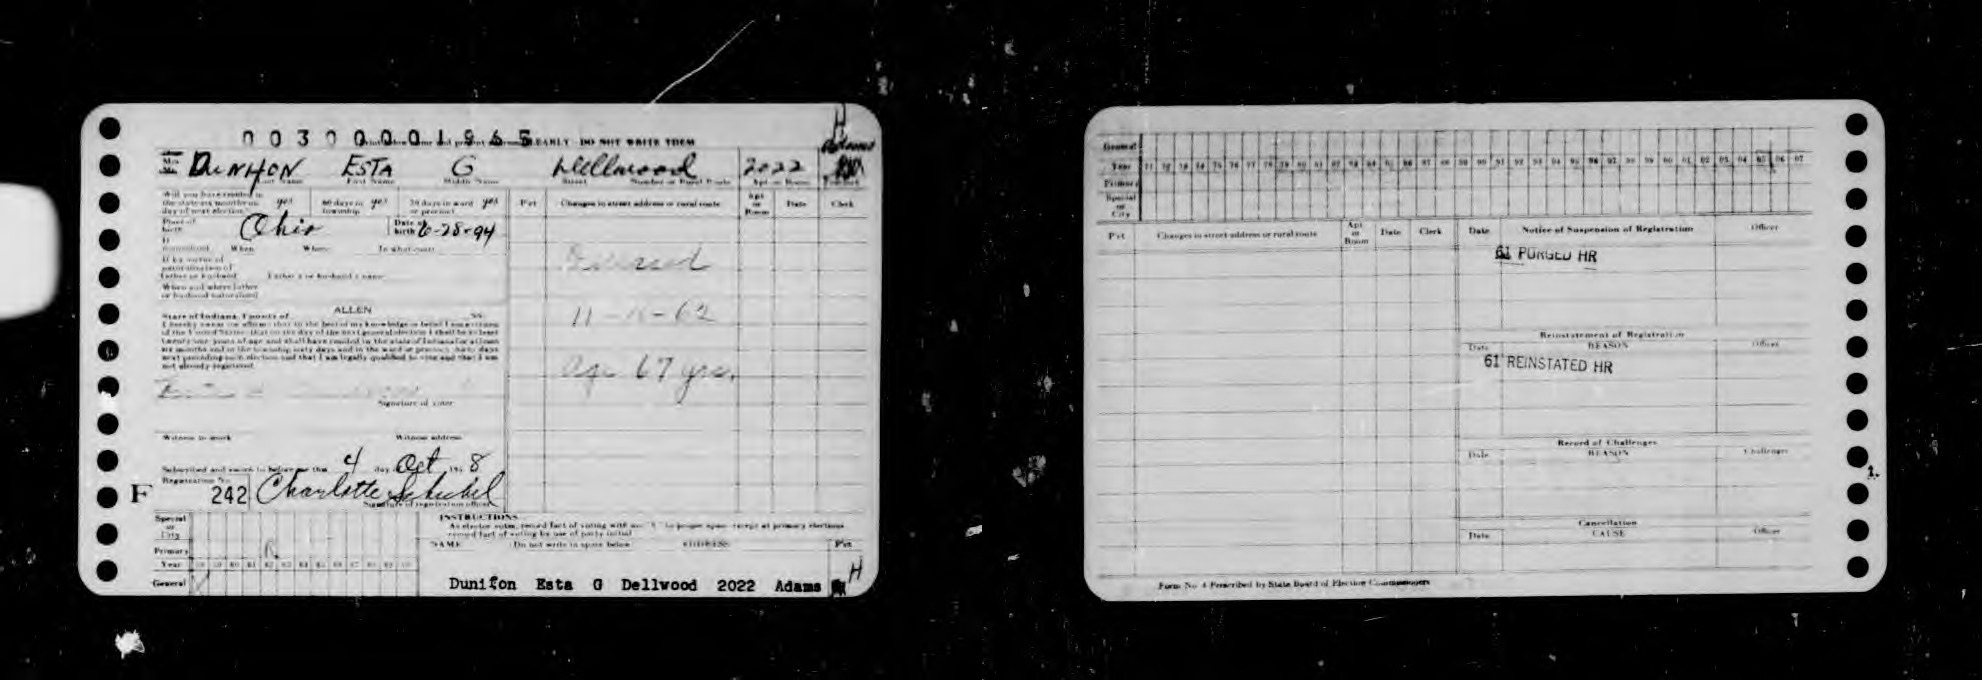 0 0 3 0 0 0 0 1 9 6 5 CLEARLY - DO NOT WRITE THEM
H
Adams
Mrs. DUNIFON ESTA G Dellwood 2022
Last Name First Name Middle Name Street Number or Rural Route Apt. or Room Precinct
Will you have resided in the state six months on day of next election? yes 60 days in township yes 30 days in ward or precinct yes
P'ct Changes in street address or rural route Apt or Room Date Clerk
Place of birth Ohio Date of birth 6-28-94
If naturalized When Where In what court
If by virtue of naturalization of father or husband Father's or husband's name
When and where father or husband naturalized
Deceased
11-11-62
Age 67 yrs.
State of Indiana, County of ALLEN SS:
I hereby swear (or affirm) that to the best of my knowledge or belief I am a citizen
of the United States; that on the day of the next general election I shall be at least
twenty-one years of age and shall have resided in the state of Indiana for at least
six months and in the township sixty days and in the ward or precinct thirty days
next preceding such election and that I am legally qualified to vote and that I am
not already registered.
Signature of voter
Witness to mark Witness address
Subscribed and sworn to before me this 4 day Oct 195 8
Registration No.
F 242 Charlotte Scheckel
Signature of registration officer
INSTRUCTIONS
As elector votes, record fact of voting with an "X" in proper space except at primary elections
record fact of voting by use of party initial
NAME Do not write in space below ADDRESS P'ct
Special or City
Primary R
Year 58 59 60 61 62 63 64 65 66 67 68 69 70
General X
Dunifon Esta G Dellwood 2022 Adams H
General
Year 71 72 73 74 75 76 77 78 79 80 81 82 83 84 85 86 87 88 89 90 91 92 93 94 95 96 97 98 99 00 01 02 03 04 05 06 07
Primary
Special or City
P'ct Changes in street address or rural route Apt or Room Date Clerk Date Notice of Suspension of Registration Officer
61 PURGED HR
Reinstatement of Registration
Date REASON Officer
61 REINSTATED HR
Record of Challenges
Date REASON Challenger
1.
Cancellation
Date CAUSE Officer
Form No. 4 Prescribed by State Board of Election Commissioners